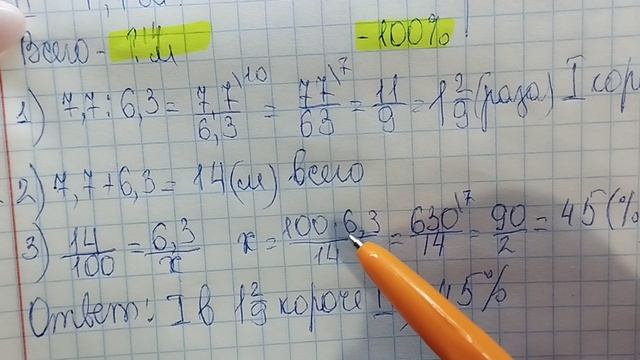 Всего - ? м - 100%
1) 7,7 : 6,3 = 7,7\10 / 6,3 = 77\7 / 63 = 11/9 = 1 2/9 (раза) I кор
2) 7,7 + 6,3 = 14 (м) всего
3) 14/100 = 6,3/x x = 100·6,3 / 14 = 630\7 / 14 = 90/2 = 45 (%
Ответ: I в 1 2/9 короче 45%